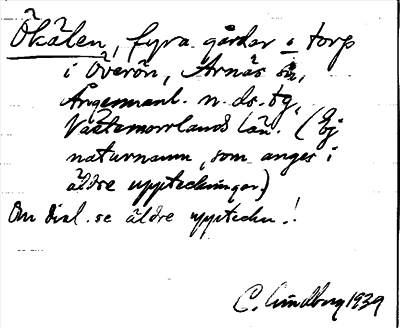 Ökälen, fyra gårdar o torp
i Överön, Arnäs sn,
Ångermanl. n. ds. tg,
Västernorrlands län. (Ej
naturnamn, som anges i
äldre uppteckningar)
Om dial. se äldre uppteckn.!
C. Lundberg 1939